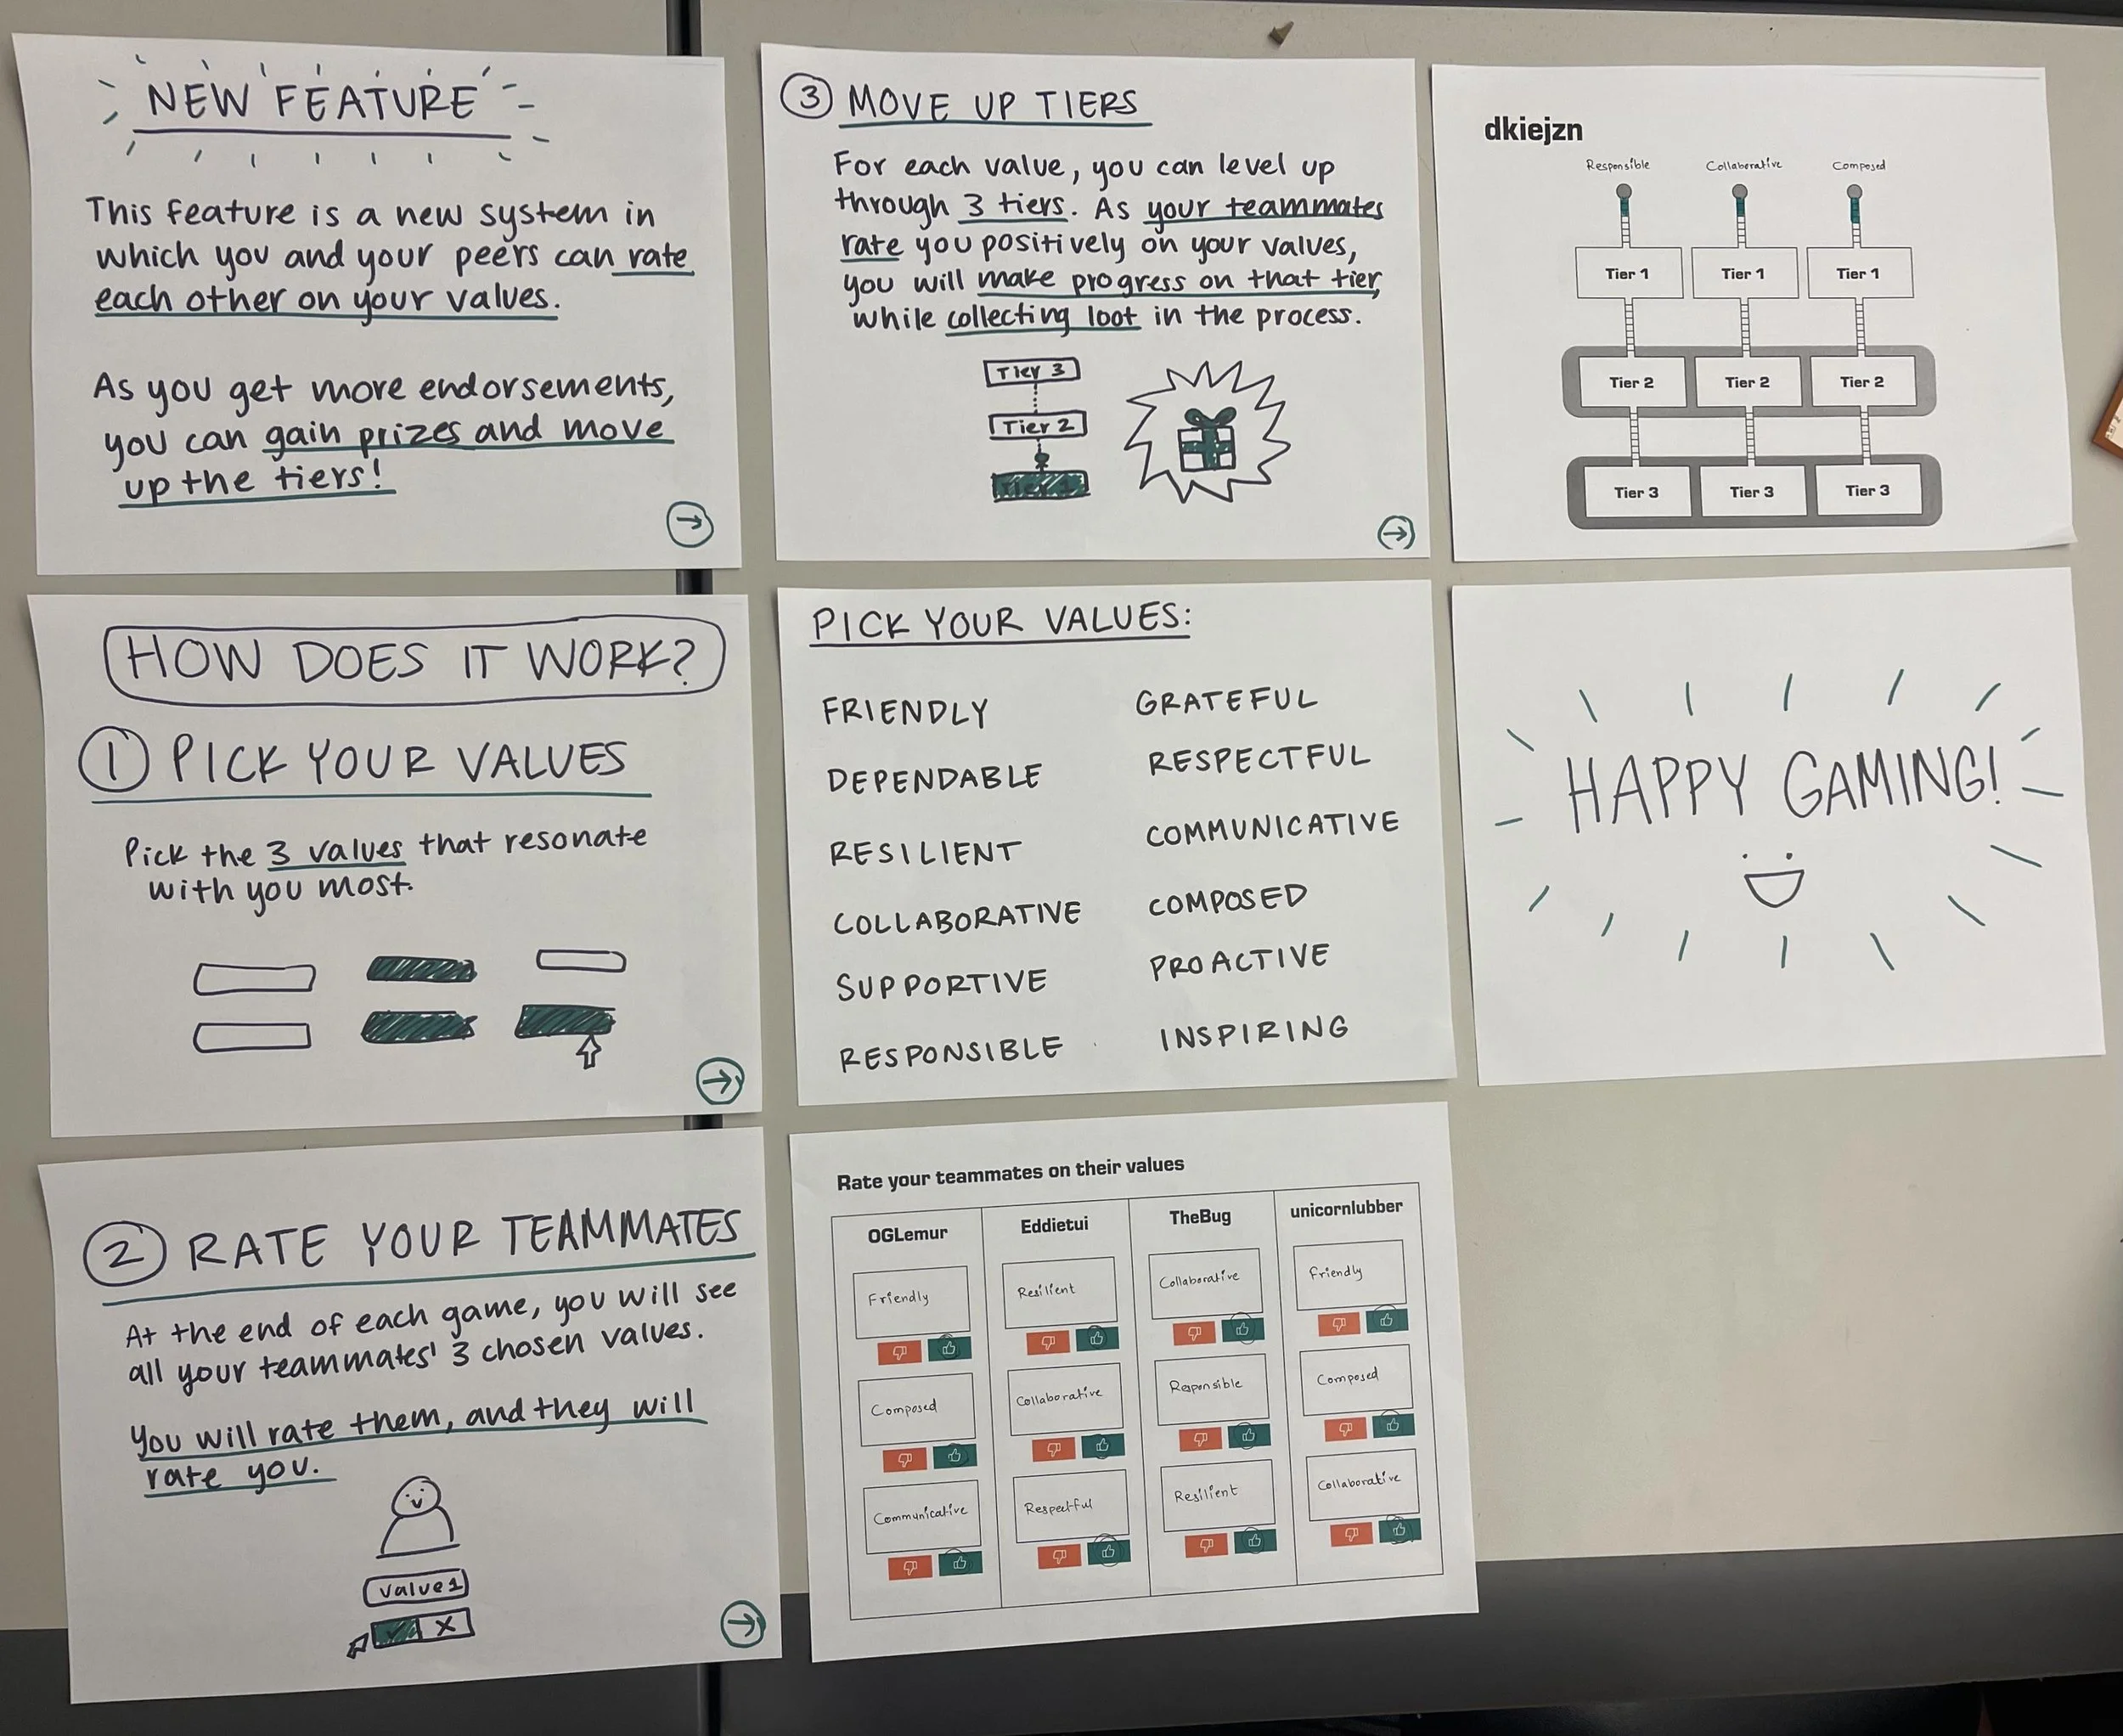 NEW FEATURE
This feature is a new system in
which you and your peers can rate
each other on your values.
As you get more endorsements,
you can gain prizes and move
up the tiers!
HOW DOES IT WORK?
1 PICK YOUR VALUES
Pick the 3 values that resonate
with you most.
2 RATE YOUR TEAMMATES
At the end of each game, you will see
all your teammates' 3 chosen values.
You will rate them, and they will
rate you.
value 1
3 MOVE UP TIERS
For each value, you can level up
through 3 tiers. As your teammates
rate you positively on your values,
you will make progress on that tier,
while collecting loot in the process.
Tier 3
Tier 2
Tier 1
PICK YOUR VALUES:
FRIENDLY GRATEFUL
DEPENDABLE RESPECTFUL
RESILIENT COMMUNICATIVE
COLLABORATIVE COMPOSED
SUPPORTIVE PROACTIVE
RESPONSIBLE INSPIRING
Rate your teammates on their values
OGLemur Eddietui TheBug unicornlubber
Friendly Resilient Collaborative Friendly
Composed Collaborative Responsible Composed
Communicative Respectful Resilient Collaborative
dkiejzn
Responsible Collaborative Composed
Tier 1 Tier 1 Tier 1
Tier 2 Tier 2 Tier 2
Tier 3 Tier 3 Tier 3
HAPPY GAMING!